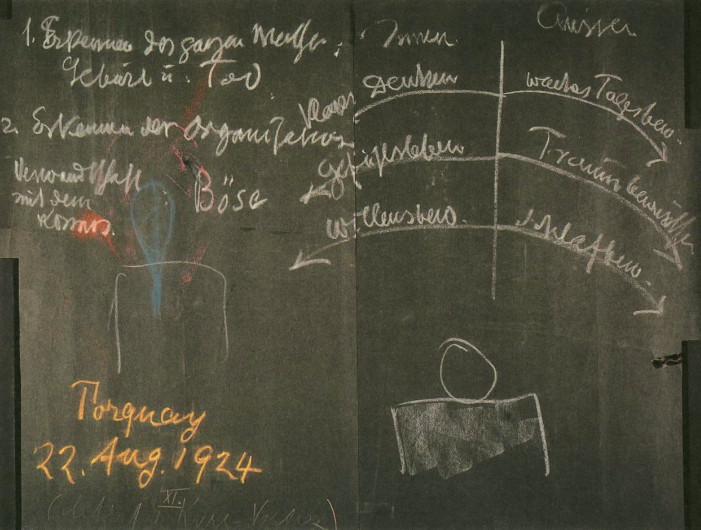 1. Erkennen des ganzen Mensch:
Geburt u. Tod
2. Erkennen der Organisation
Verwandtschaft
mit dem
Kosmos.
Böse
Torquay
22. Aug. 1924
XI.
Innen
Aussen
Denken
waches Tagesbew.
Gefühlsleben
Traumbewusstsein
Willensbew.
Schlafbew.